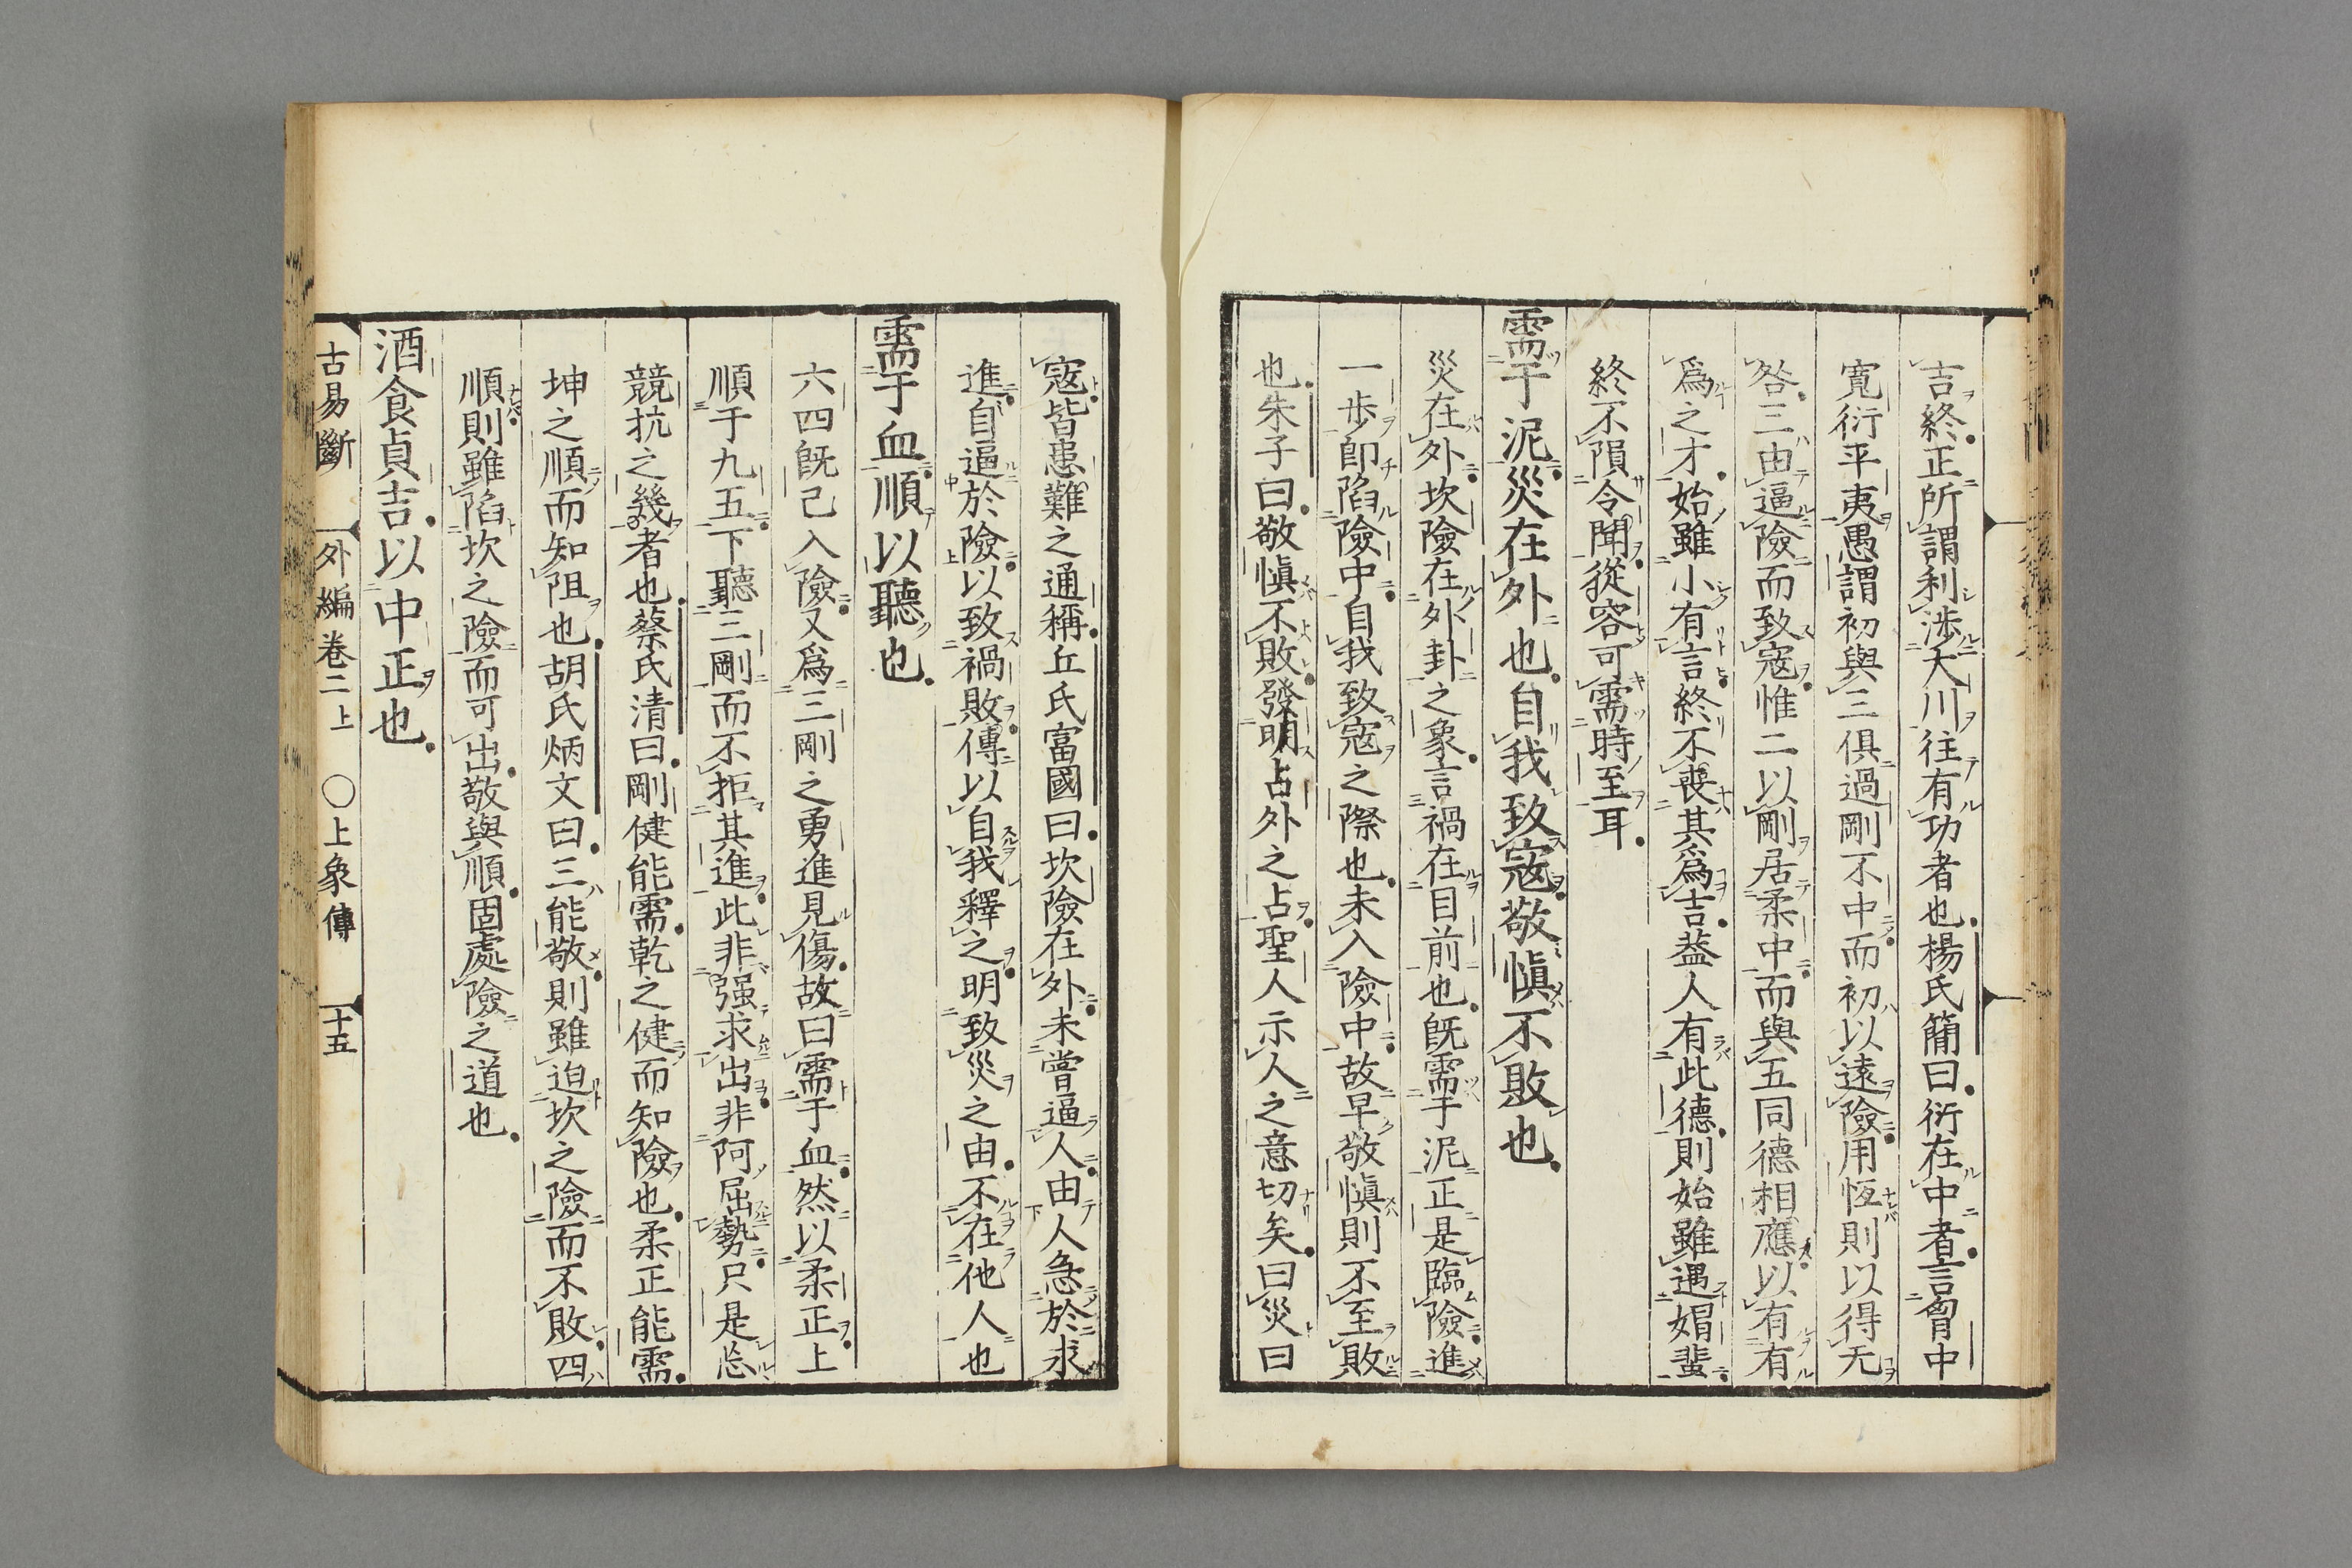 吉終正所謂利涉大川往有功者也楊氏簡曰衍在中者言胷中
寬衍平夷愚謂初與三俱過剛不中而初以遠險用恆則以得无
咎三由逼險而致寇惟二以剛居柔中而與五同德相應以有有
爲之才始雖小有言終不喪其爲吉葢人有此德則始雖遇媢蜚
終不隕令聞從容可需時至耳
需于泥災在外也自我致寇敬愼不敗也
災在外坎險在外卦之象言禍在目前也旣需于泥正是臨險進
一步卽陷險中自我致寇之際也未入險中故早敬愼則不至敗
也朱子曰敬愼不敗發明占外之占聖人示人之意切矣曰災曰
寇皆患難之通稱丘氏富國曰坎險在外未嘗逼人由人急於求
進自逼於險以致禍敗傳以自我釋之明致災之由不在他人也
需于血順以聽也
六四旣已入險又爲三剛之勇進見傷故曰需于血然以柔正上
順于九五下聽三剛而不拒其進此非强求出非阿屈勢只是忘
競抗之幾者也蔡氏清曰剛健能需乾之健而知險也柔正能需
坤之順而知阻也胡氏炳文曰三能敬則雖迫坎之險而不敗四
順則雖陷坎之險而可出敬與順固處險之道也
酒食貞吉以中正也
古易斷 外編卷二上 〇上象傳 十五